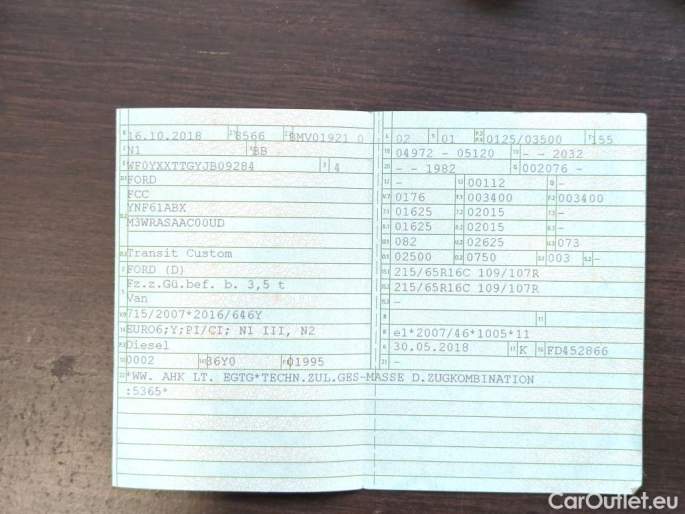 16.10.2018 8566 BMV01921 0
N1 BB
WF0YXXTTGYJB09284 3 4
FORD
FCC
YNF61ABX
M3WRASAAC00UD
Transit Custom
FORD (D)
Fz.z.Gü.bef. b. 3,5 t
Van
715/2007*2016/646Y
EURO6;Y;PI/CI; N1 III, N2
Diesel
0002 36Y0 01995
*WW. AHK LT. EGTG*TECHN.ZUL.GES-MASSE D.ZUGKOMBINATION
:5365*
02 01 0125/03500 155
04972 - 05120 - - 2032
- - 1982 002076 -
- 00112 -
0176 003400 003400
01625 02015 -
01625 02015 -
082 02625 073
02500 0750 003 -
215/65R16C 109/107R
215/65R16C 109/107R
-
-
e1*2007/46*1005*11
30.05.2018 K FD452866
-
CarOutlet.eu